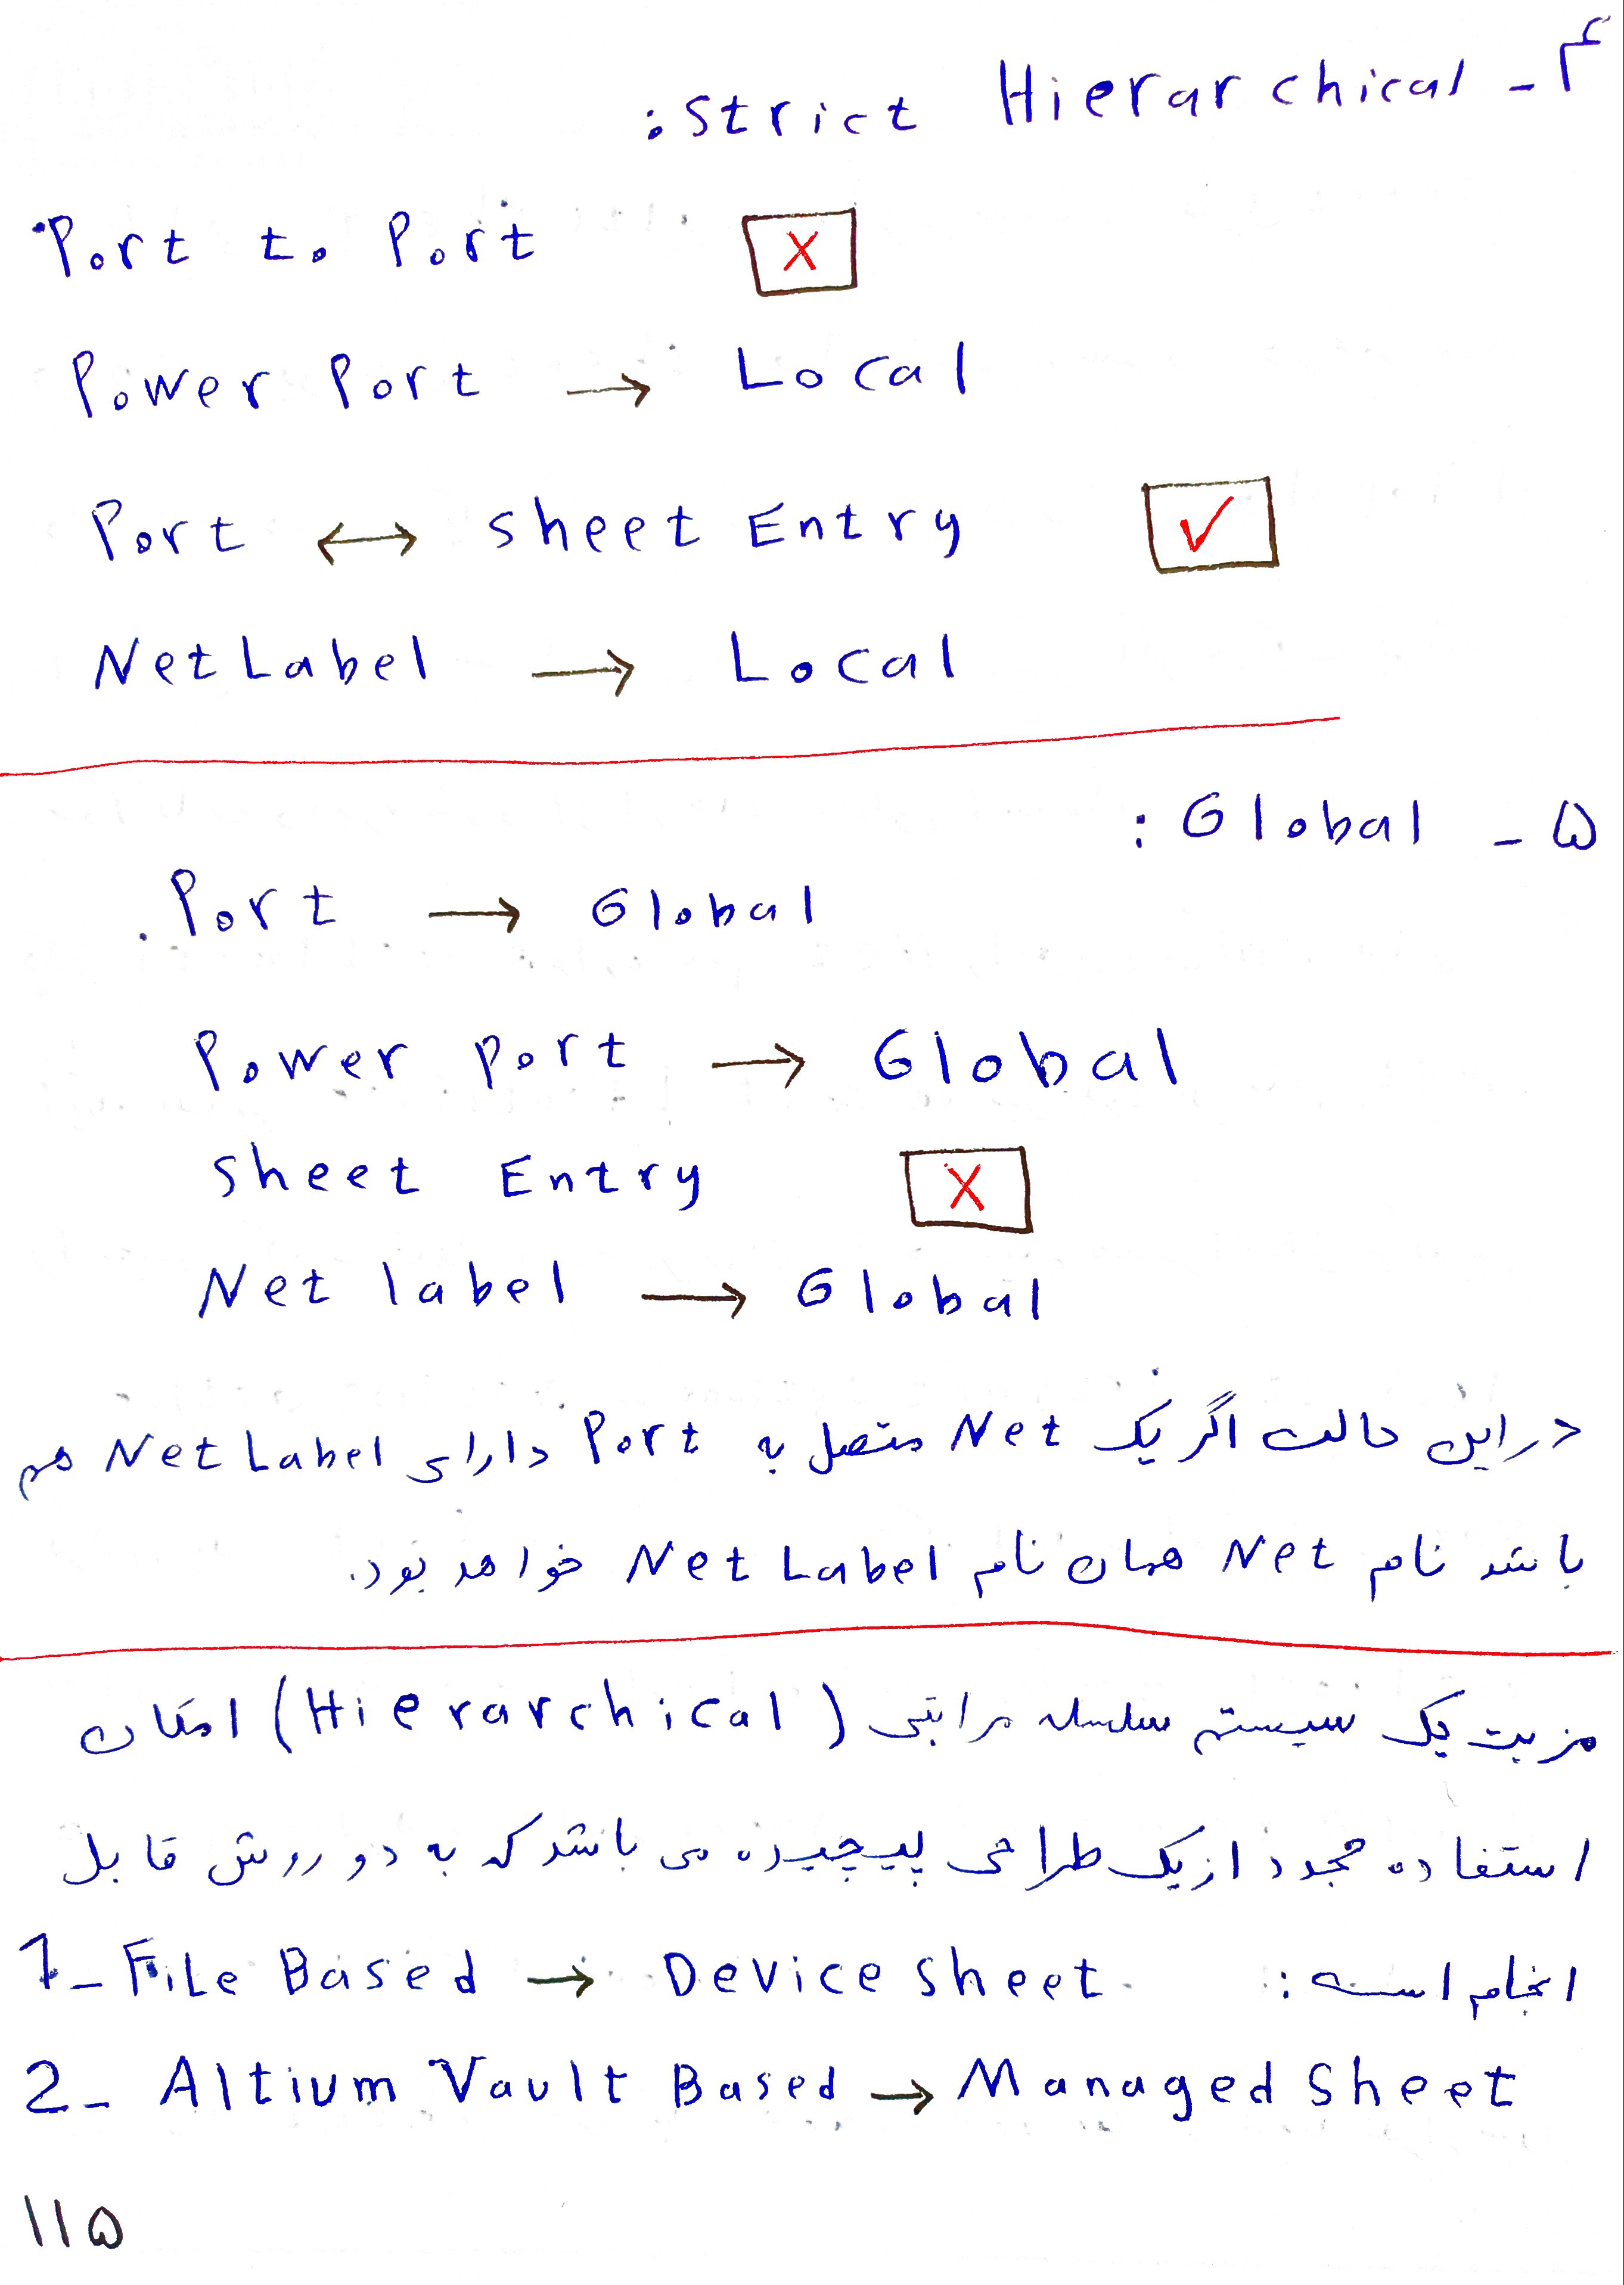 ۴- Strict Hierarchical:
Port to Port X
Power Port → Local
Port ↔ sheet Entry ✓
NetLabel → Local
۵- Global:
Port → Global
Power port → Global
sheet Entry X
Net label → Global
در این حالت اگر یک Net متصل به Port دارای NetLabel هم
باشد نام Net همان نام NetLabel خواهد بود.
مزیت یک سیستم سلسله مراتبی (Hierarchical) امکان
استفاده مجدد از یک طراحی پیچیده می باشد که به دو روش قابل
انجام است:
1- File Based → Device sheet
2- Altium Vault Based → Managed Sheet
۱۱۵